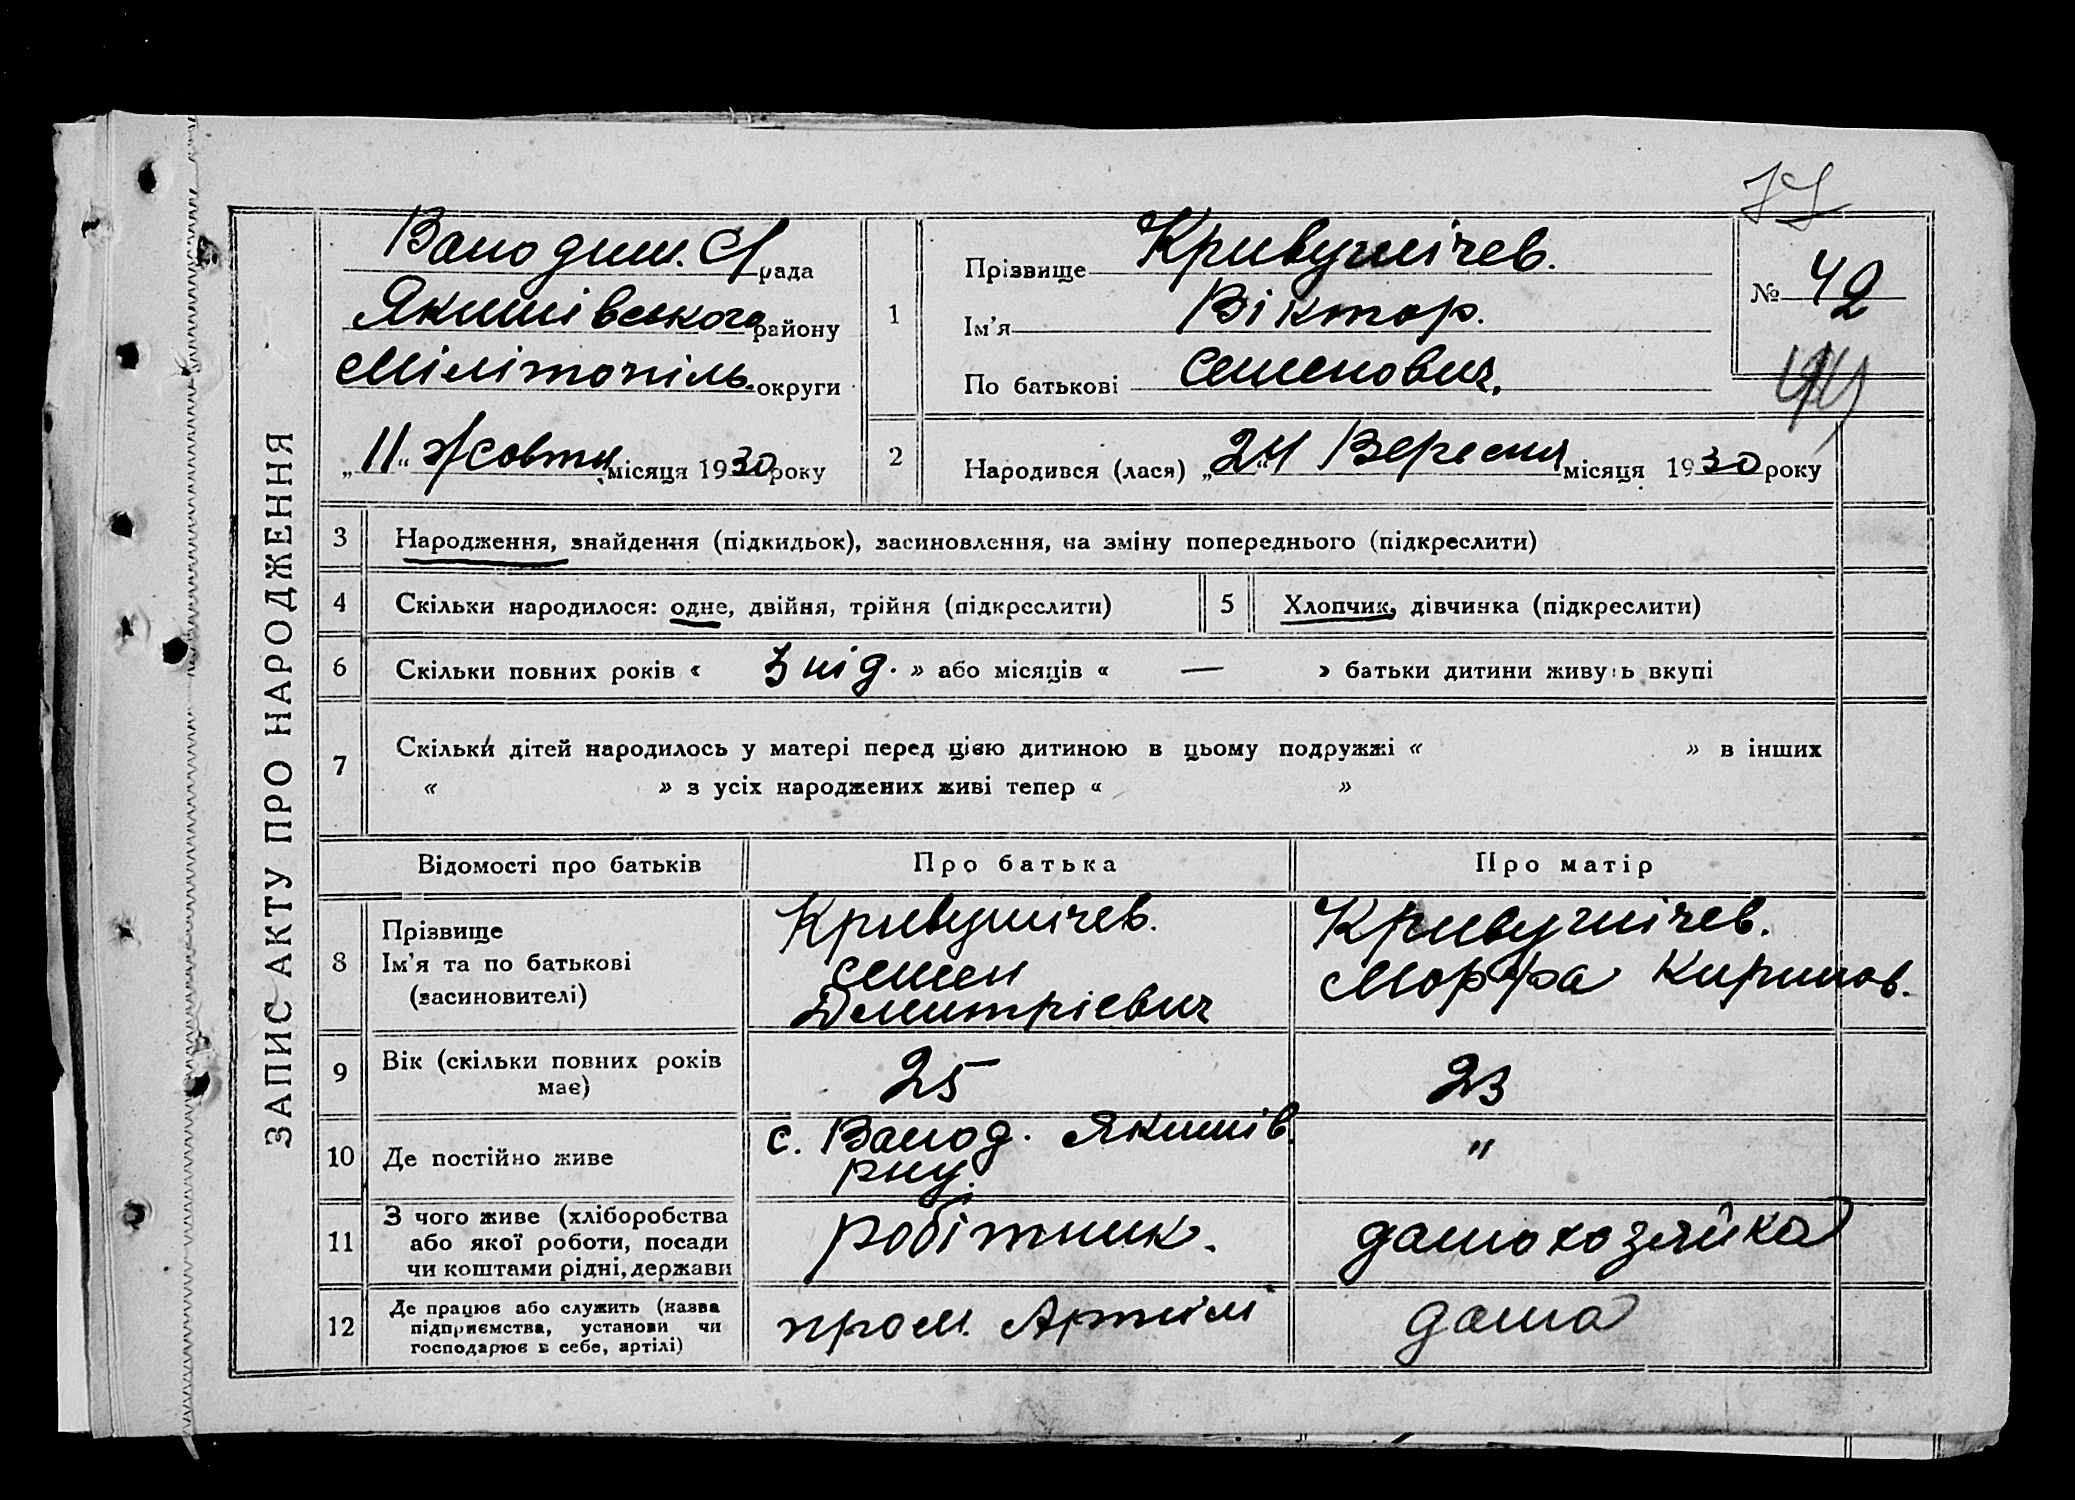 ЗАПИС АКТУ ПРО НАРОДЖЕННЯ
77
Володим. С/рада
Якимівського району
Мілітопіль. округи
„11“ жовтн місяця 1930 року
1
Прізвище Кривушічев.
Ім'я Віктор.
По батькові Семенович.
№ 42
2
Народився (лася) „24“ Вересня місяця 1930 року
3 Народження, знайдення (підкидьок), засиновлення, на зміну попереднього (підкреслити)
4 Скільки народилося: одне, двійня, трійня (підкреслити)
5 Хлопчик, дівчинка (підкреслити)
6 Скільки повних років « 3 під. » або місяців « — » батьки дитини живуть вкупі
7 Скільки дітей народилось у матері перед цією дитиною в цьому подружжі « » в інших
« » з усіх народжених живі тепер « »
Відомості про батьків
Про батька
Про матір
8 Прізвище
Ім'я та по батькові
(засиновителі)
Кривушічев.
Семен
Дмитрієвич
Кривушічев.
Морфа Кирилов.
9 Вік (скільки повних років
має)
25
23
10 Де постійно живе
с. Волод. Якимів.
рну.
"
11 З чого живе (хліборобства
або якої роботи, посади
чи коштами рідні, держави
робітник.
домохозяйка
12 Де працює або служить (назва
підприємства, установи чи
господарює в себе, артілі)
пром. Артілі
дома